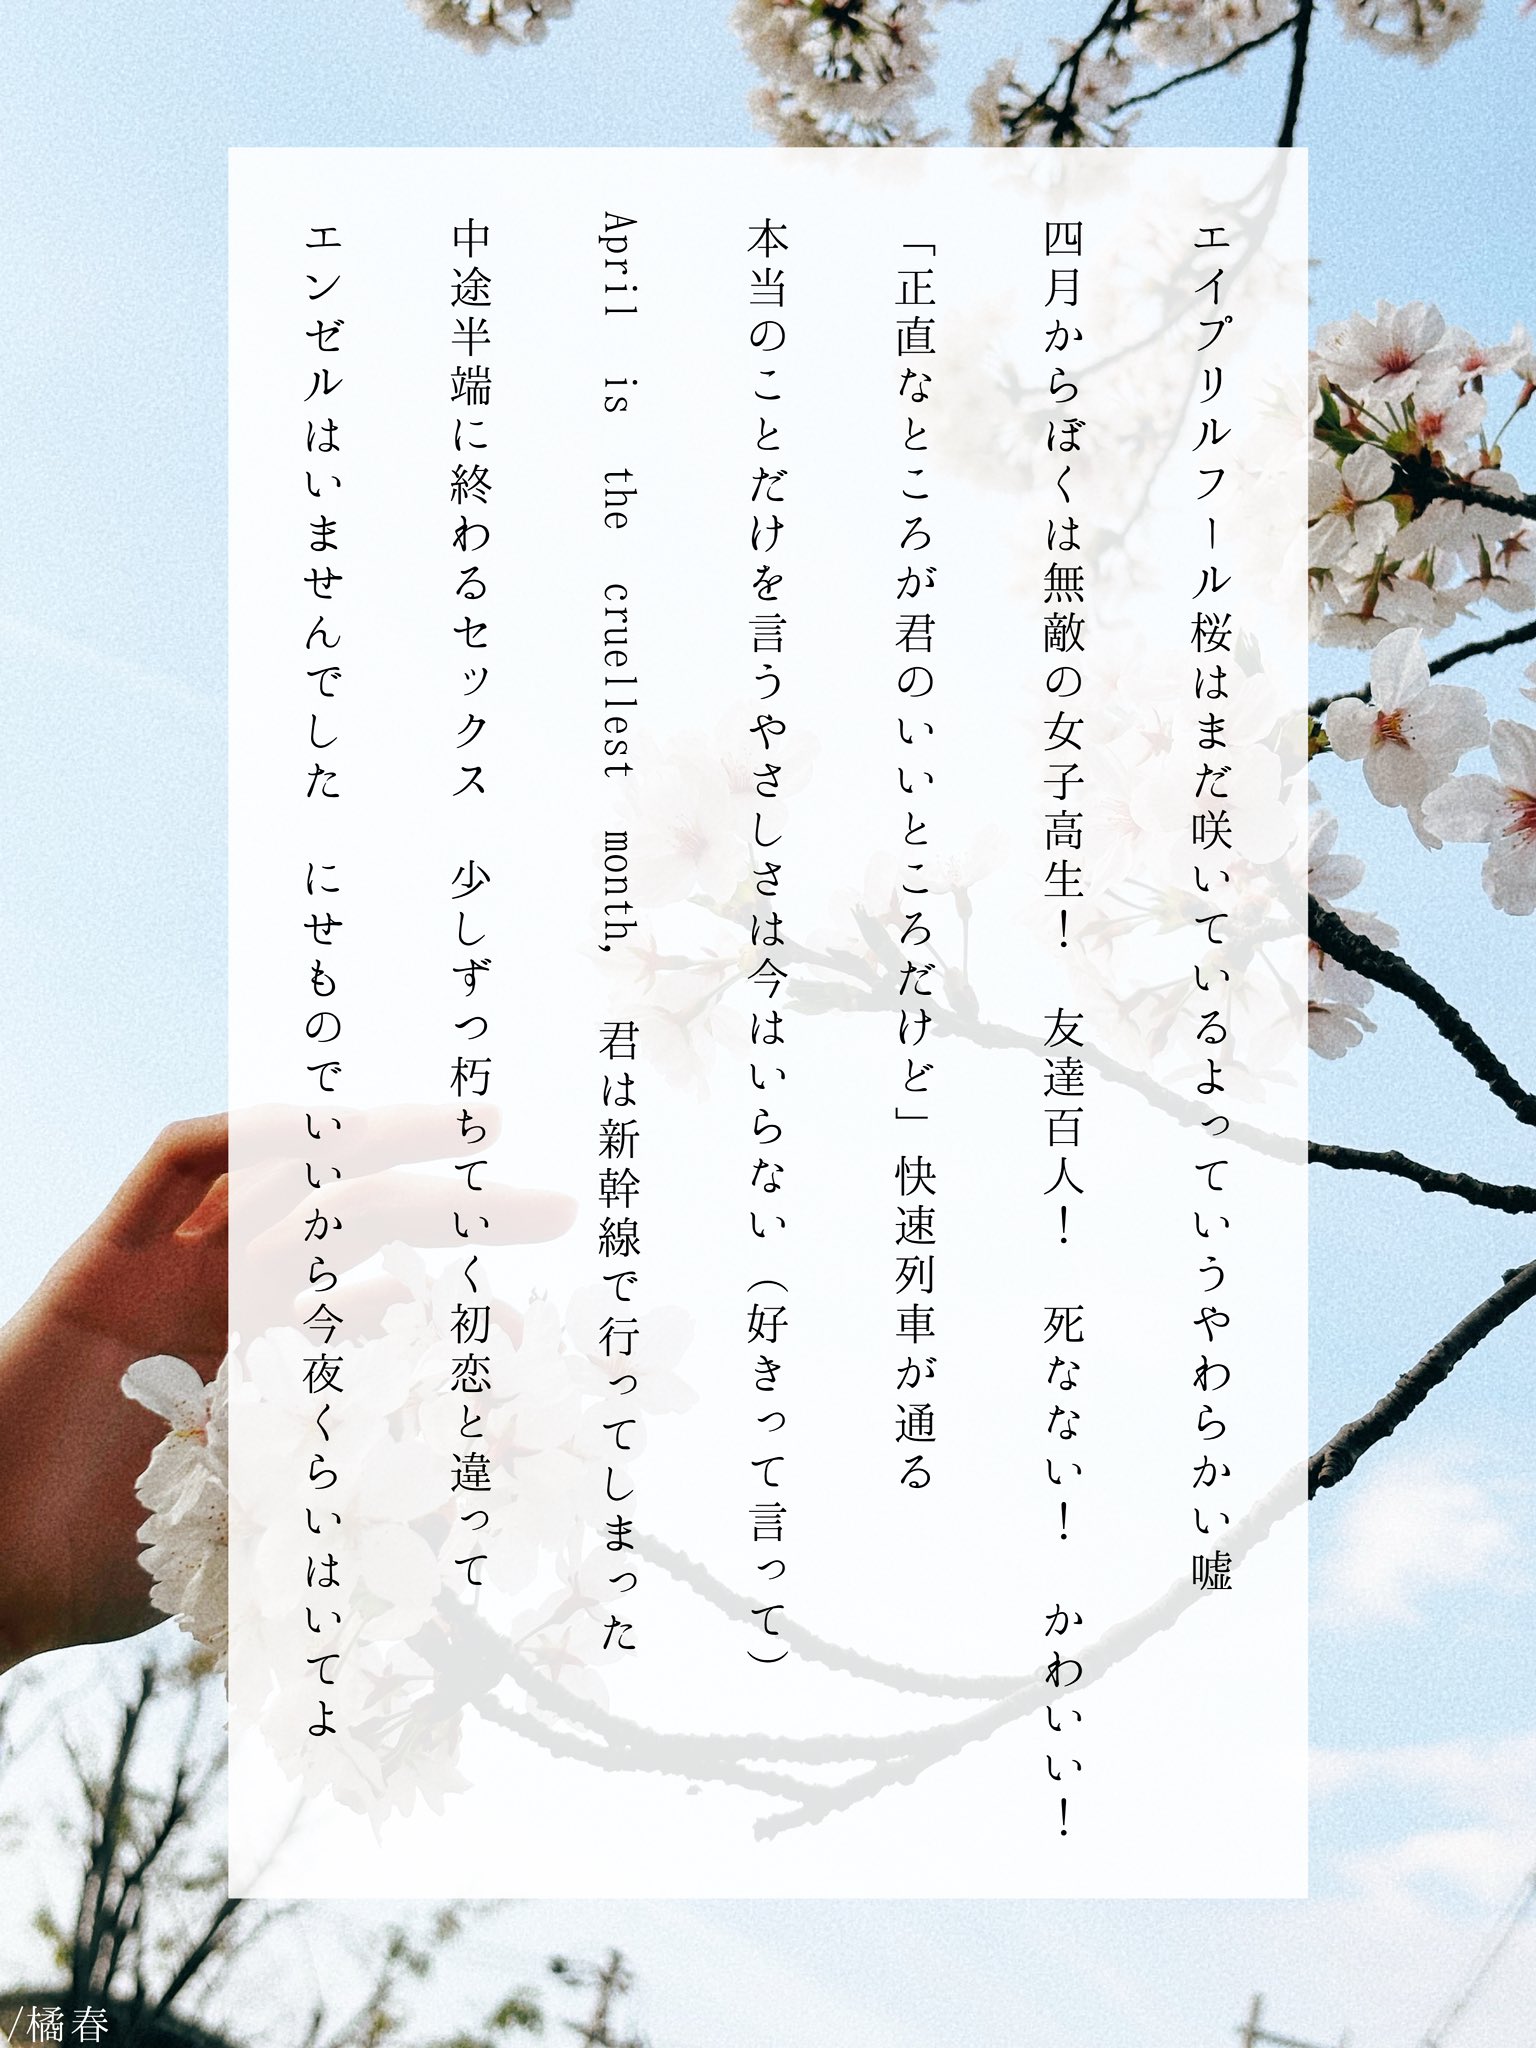 エイプリルフール桜はまだ咲いているよっていうやわらかい嘘
四月からぼくは無敵の女子高生！　友達百人！　死なない！　かわいい！
「正直なところが君のいいところだけど」快速列車が通る
本当のことだけを言うやさしさは今はいらない（好きって言って）
April is the cruellest month,　君は新幹線で行ってしまった
中途半端に終わるセックス　少しずつ朽ちていく初恋と違って
エンゼルはいませんでした　にせものでいいから今夜くらいはいてよ
/橘春